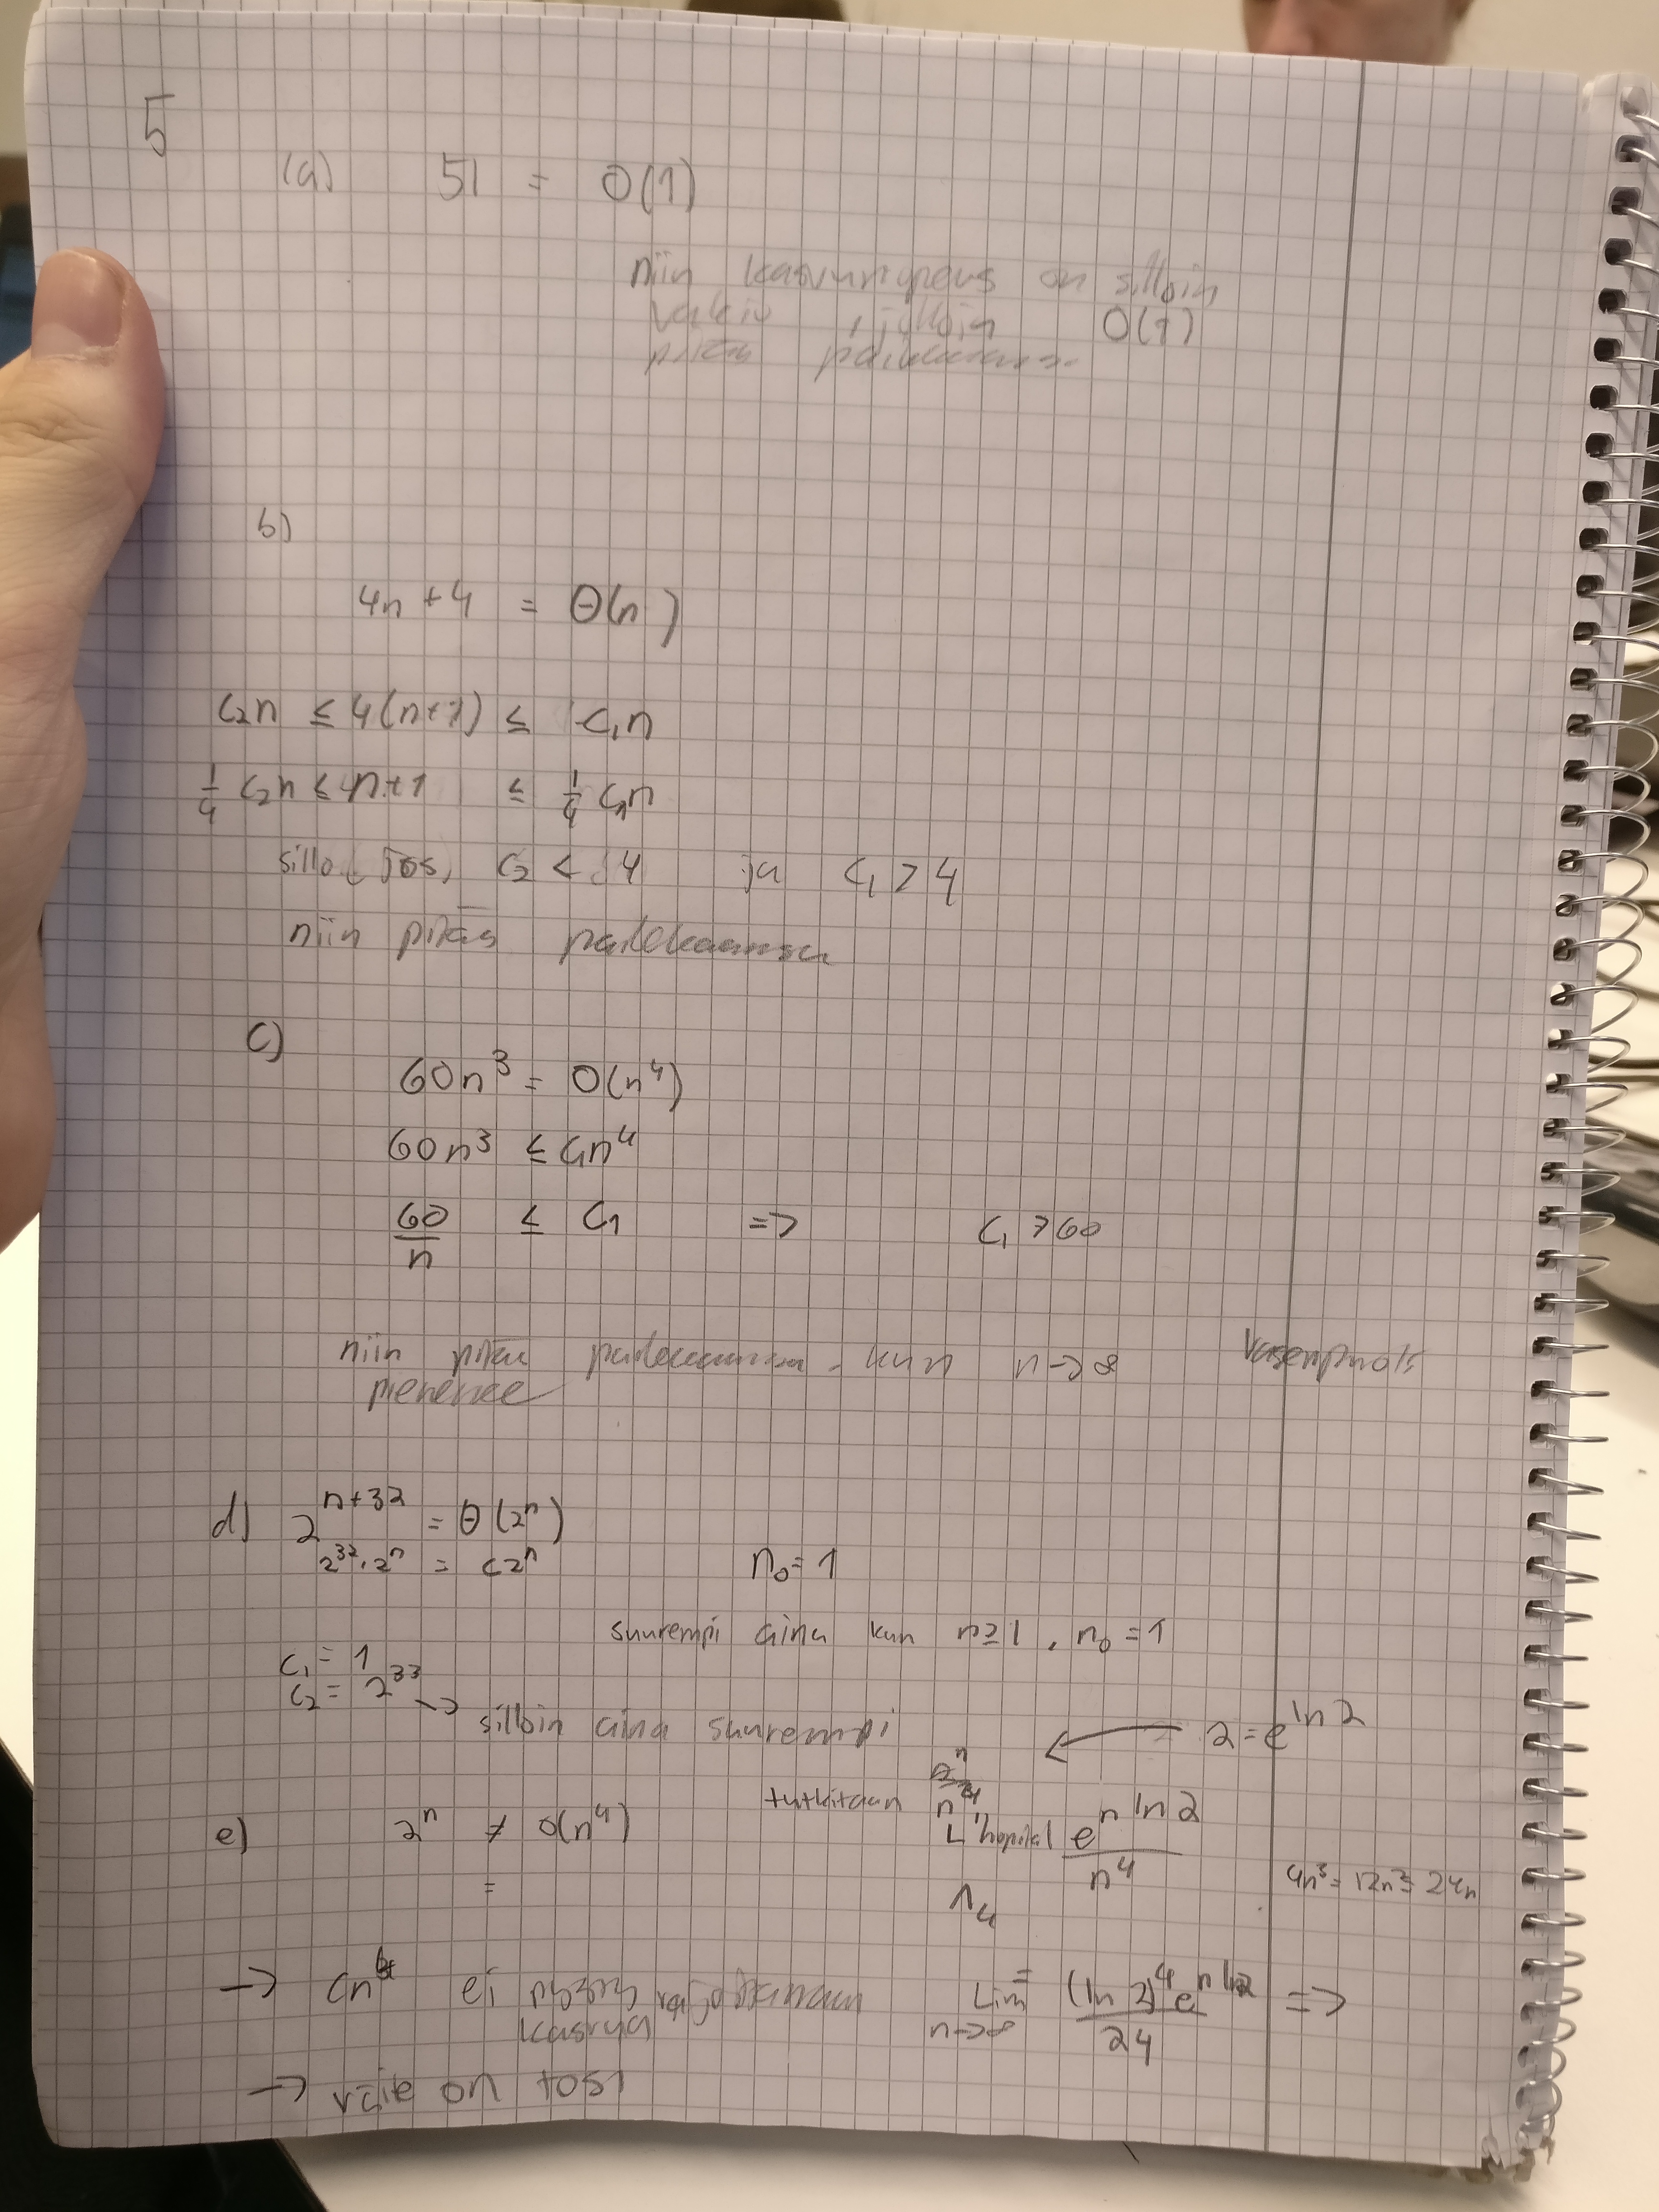 5
(a) 51 = O(1)
niin kasvunopeus on silloin
vakio, jolloin O(1)
pitää paikkansa.
b)
4n + 4 = Θ(n)
c₂n ≤ 4(n+1) ≤ c₁n
¼ c₂n ≤ n+1 ≤ ¼ c₁n
jos, c₂ < 4 ja c₁ > 4
niin pitää paikkaansa
c)
60n³ = O(n⁴)
60n³ ≤ c₁n⁴
60/n ≤ c₁ => c₁ > 60
niin pitää paikkaansa. kun n → ∞ vasenpuoli
pienenee
d) 2ⁿ⁺³² = Θ(2ⁿ)
2³²·2ⁿ = c2ⁿ n₀ = 1
suurempi aina kun n ≥ 1, n₀ = 1
c₁ = 1
c₂ = 2³³ → silloin aina suurempi
2 = e^ln 2
tutkitaan 2ⁿ/n⁴
e) 2ⁿ ≠ O(n⁴) L'hopital e^(n ln 2)/n⁴
= 4n³ = 12n² = 24n
→ cn⁴ ei pysty rajoittamaan = Lim n→∞ (ln 2)⁴ e^(n ln 2)/24 =>
kasvua
→ väite on tosi